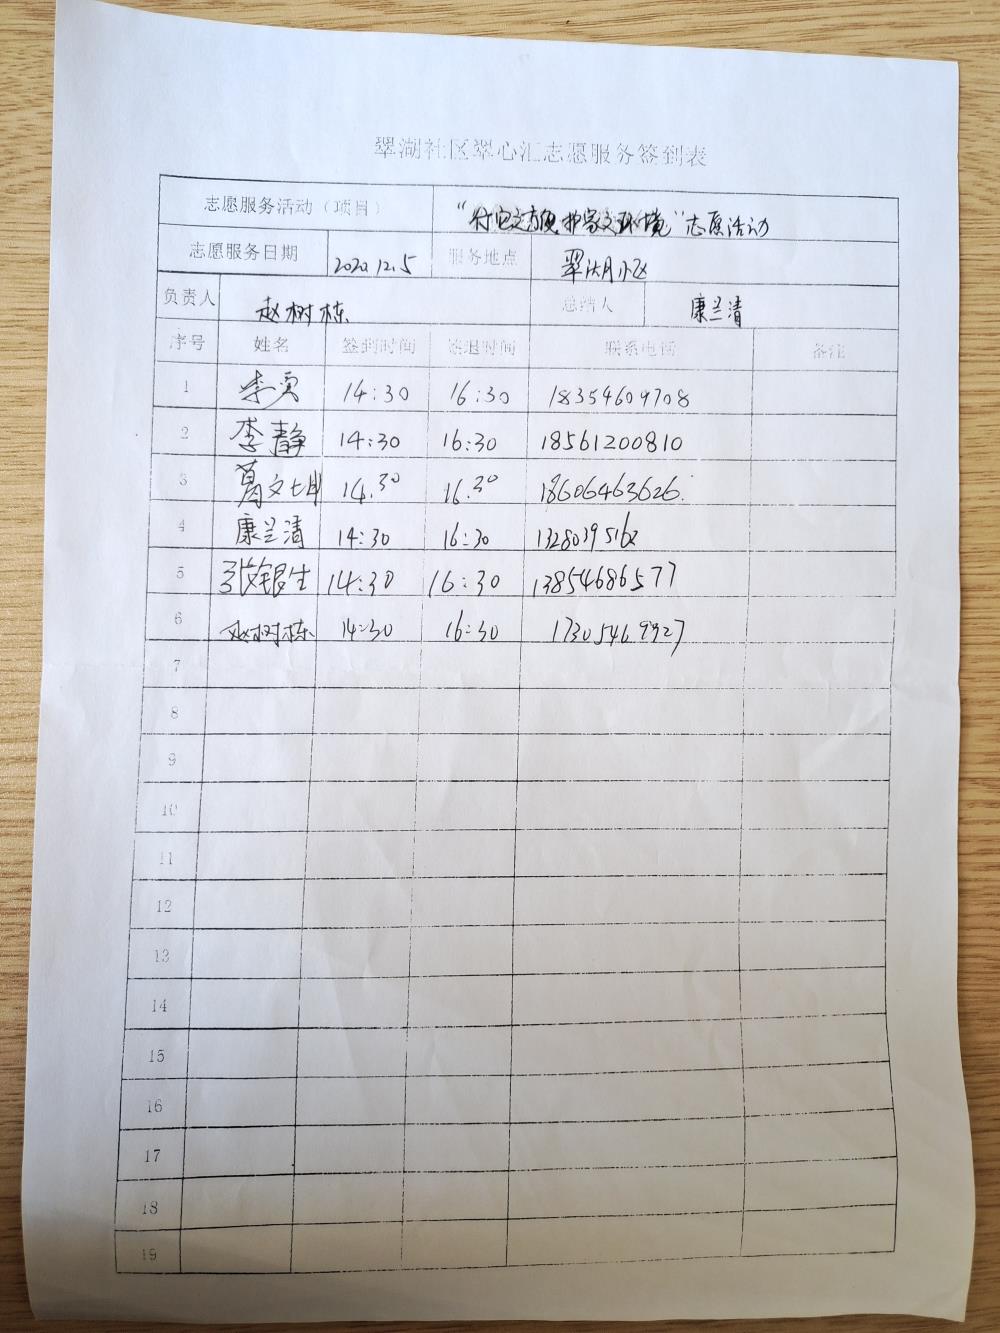 翠湖社区翠心汇志愿服务签到表
志愿服务活动（项目） 志愿活动
志愿服务日期 2020.12.5 服务地点 翠湖小区
负责人 赵树栋 总结人 康兰清
序号 姓名 签到时间 签退时间 联系电话 备注
1 李勇 14:30 16:30 18354609708
2 李静 14:30 16:30 18561200810
3 14.30 16.30 18606463626.
4 康兰清 14:30 16:30
5 张银生 14:30 16:30 13854686577
6 赵树栋 14:30 16:30 17305469927
7
8
9
10
11
12
13
14
15
16
17
18
19